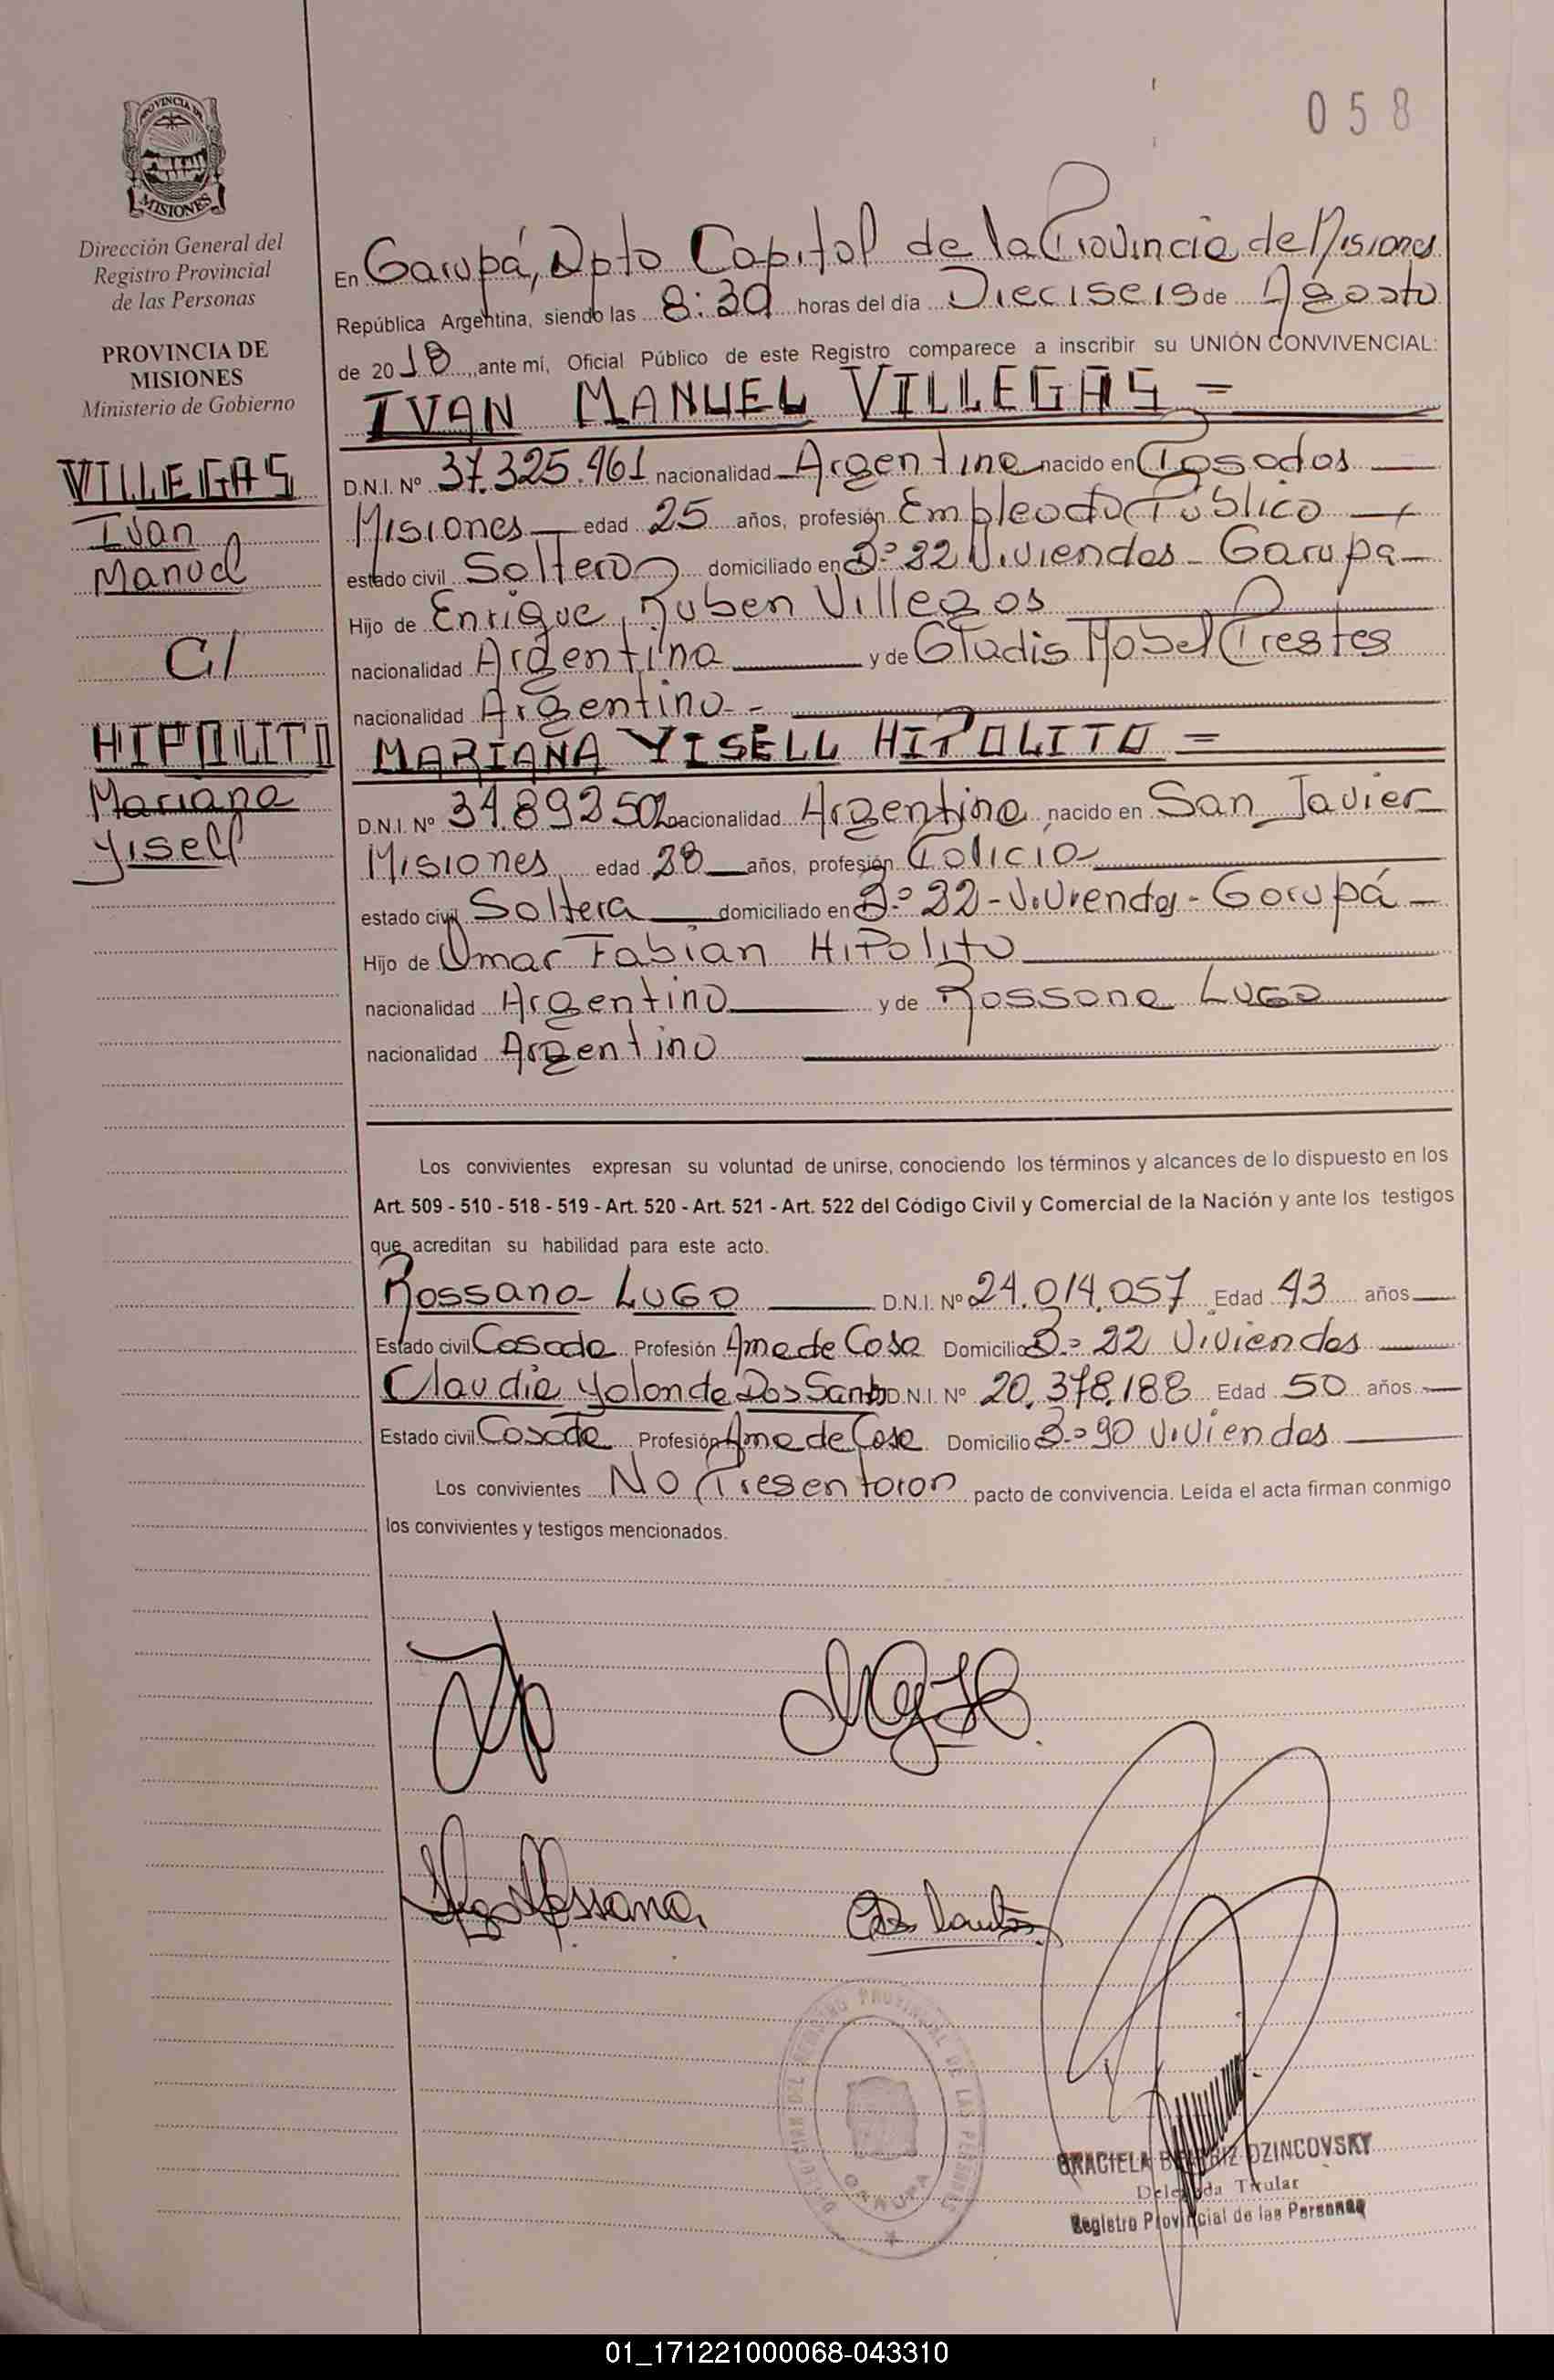 058
PROVINCIA DE
MISIONES
Dirección General del
Registro Provincial
de las Personas
PROVINCIA DE
MISIONES
Ministerio de Gobierno
VILLEGAS
Ivan
Manuel
C/
HIPOLITO
Mariana
Yisell
En Garupá, Dpto Capital de la Provincia de Misiones
República Argentina, siendo las 8:30 horas del día Dieciseis de Agosto
de 2018, ante mí, Oficial Público de este Registro comparece a inscribir su UNIÓN CONVIVENCIAL:
IVAN MANUEL VILLEGAS =
D.N.I. Nº 37.325.461 nacionalidad Argentina nacido en Posadas
Misiones edad 25 años, profesión Empleado Público
estado civil Soltero domiciliado en B:º 22 Viviendas - Garupa -
Hijo de Enrique Ruben Villegas
nacionalidad Argentina y de Gladis Mabel Prestes
nacionalidad Argentina -
MARIANA YISELL HIPOLITO =
D.N.I. Nº 34.893502 nacionalidad Argentina nacido en San Javier
Misiones edad 28 años, profesión Policia
estado civil Soltera domiciliado en B:º 22 - Viviendas - Garupá -
Hijo de Omar Fabian Hipolito
nacionalidad Argentina y de Rossana Lugo
nacionalidad Argentina
Los convivientes expresan su voluntad de unirse, conociendo los términos y alcances de lo dispuesto en los
Art. 509 - 510 - 518 - 519 - Art. 520 - Art. 521 - Art. 522 del Código Civil y Comercial de la Nación y ante los testigos
que acreditan su habilidad para este acto.
Rossana Lugo D.N.I. Nº 24.014.057 Edad 43 años
Estado civil Casada Profesión Ama de Casa Domicilio B:º 22 Viviendas
Claudia Yolanda Dos Santos D.N.I. Nº 20.378.188 Edad 50 años
Estado civil Casada Profesión Ama de Casa Domicilio B:º 90 Viviendas
Los convivientes No Presentaron pacto de convivencia. Leída el acta firman conmigo
los convivientes y testigos mencionados.
Lugo Rossana
Dos Santos
REGISTRO PROVINCIAL DE LAS PERSONAS
GARUPA
GRACIELA BEATRIZ OZINCOVSKY
Delegada Titular
Registro Provincial de las Personas
01_171221000068-043310